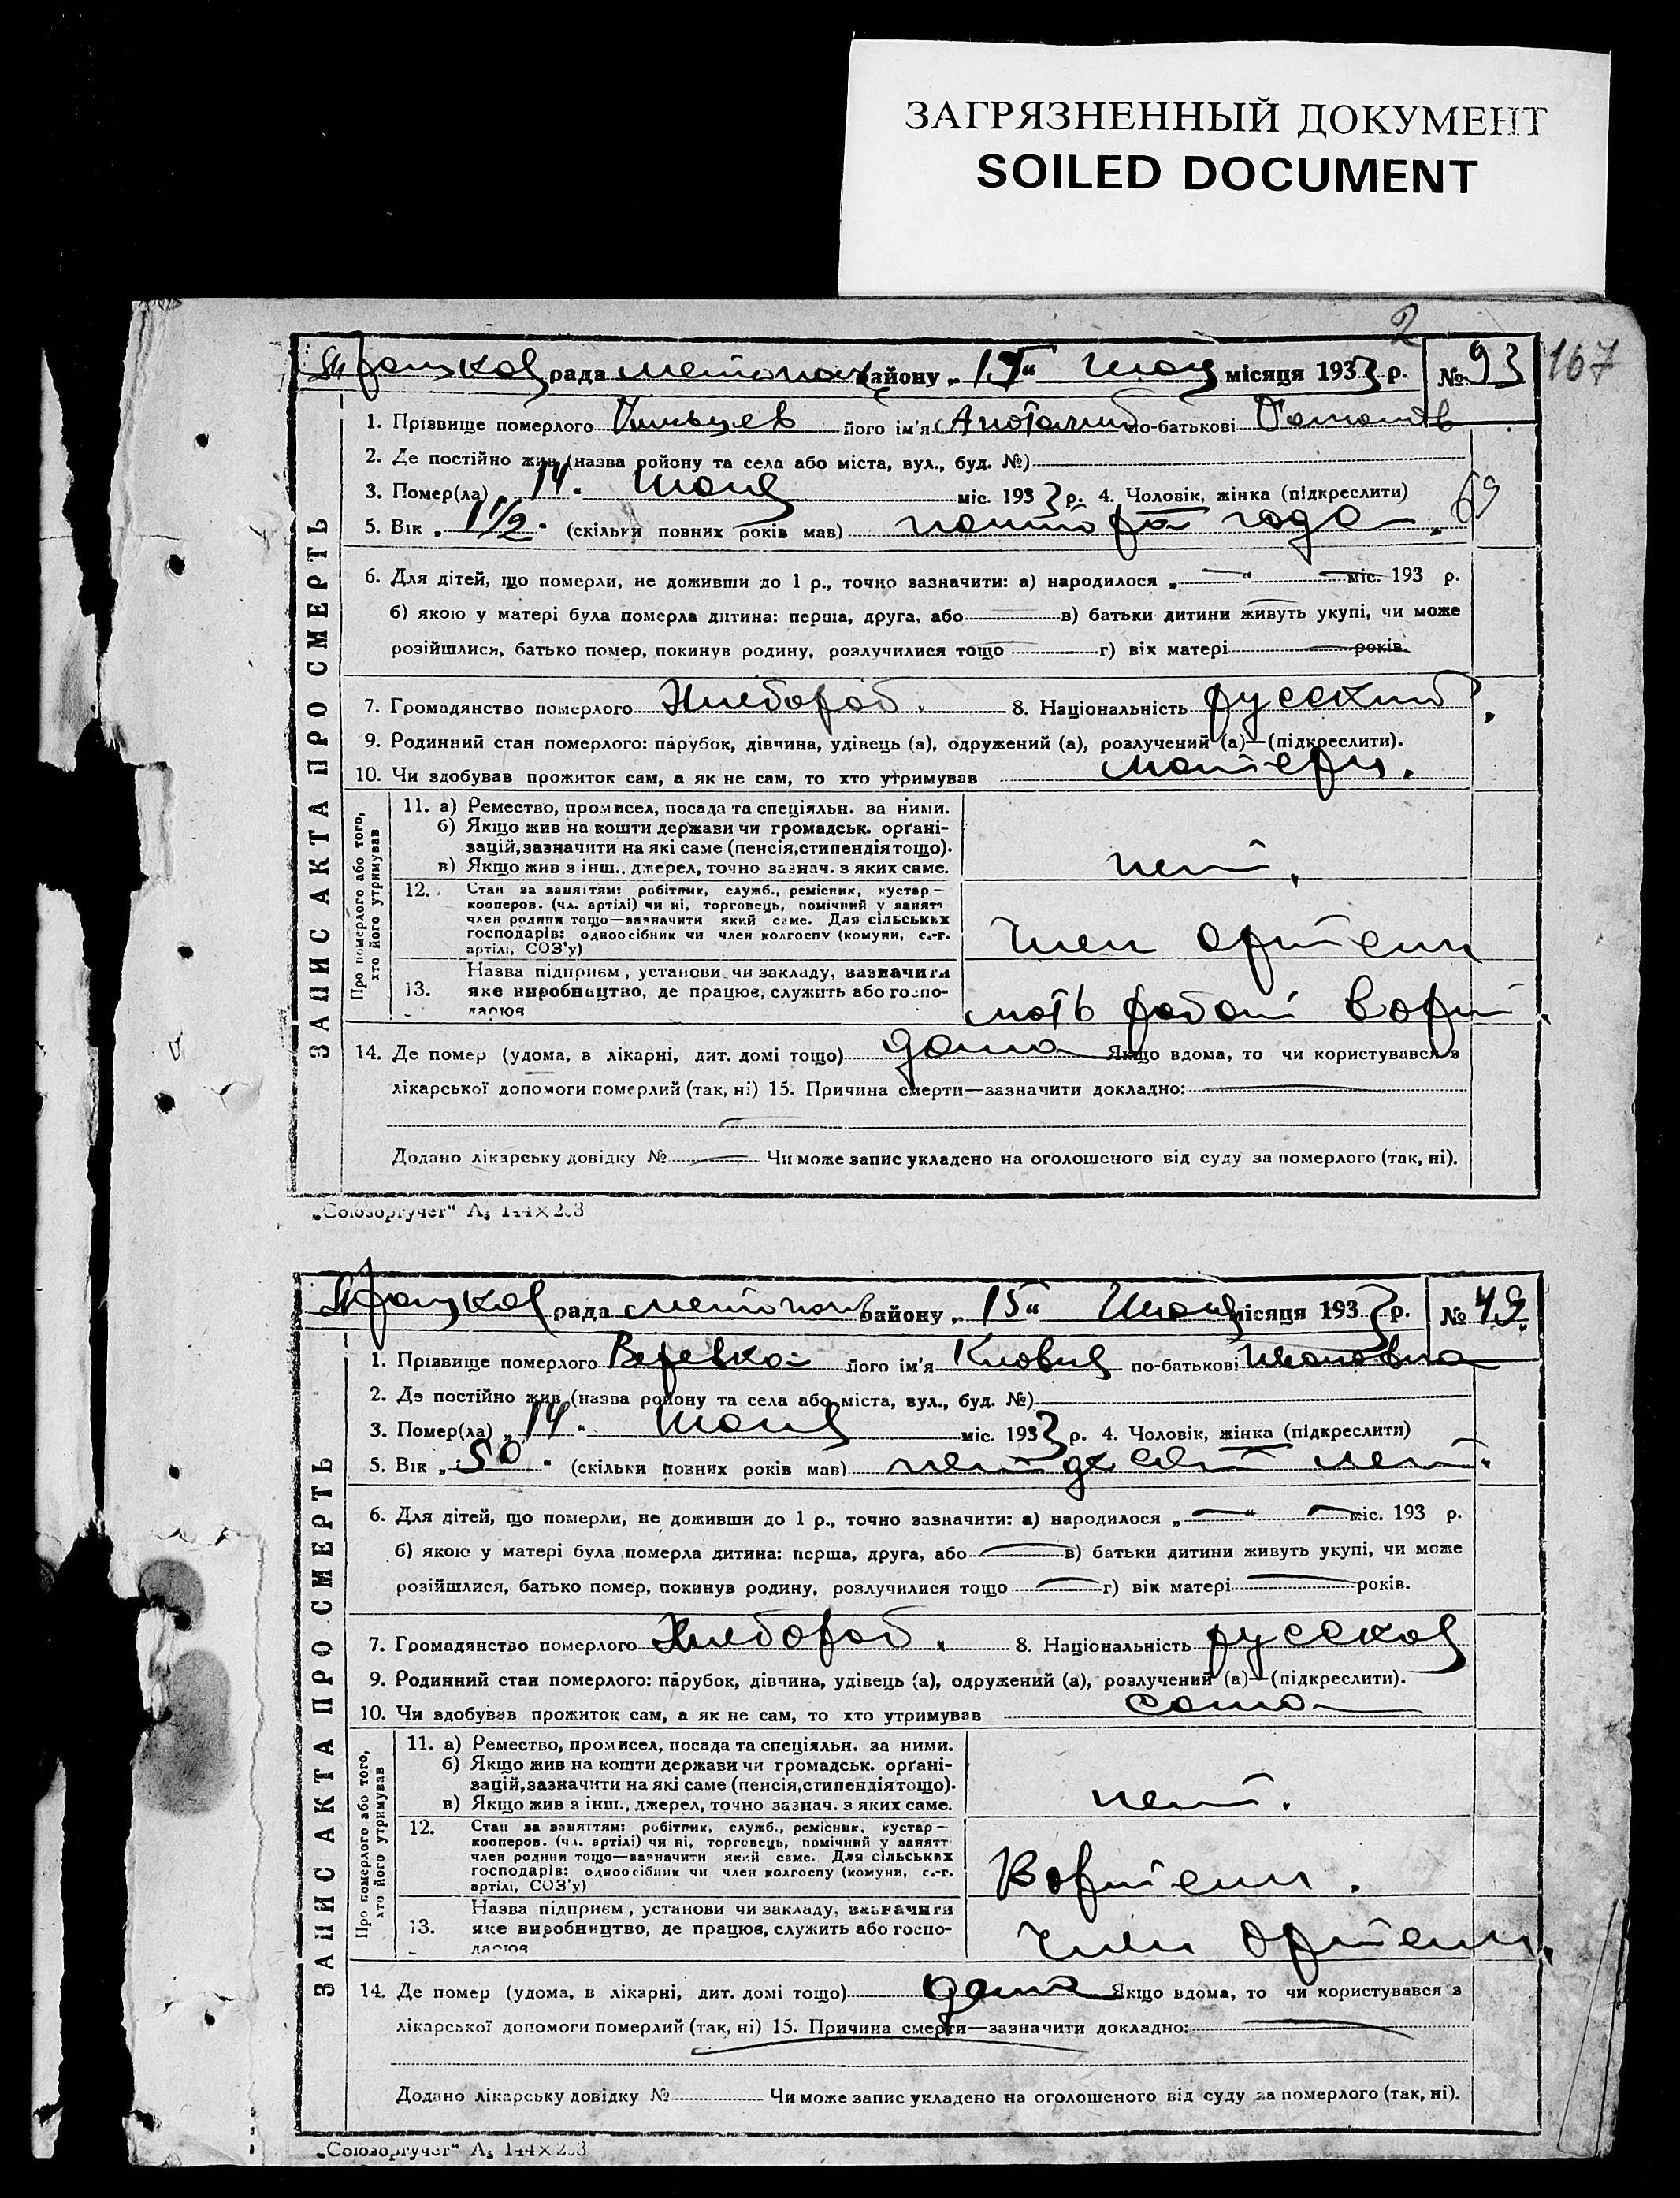 ЗАГРЯЗНЕННЫЙ ДОКУМЕНТ
SOILED DOCUMENT
2
рада району „ 15“ місяця 1933 р. № 93 167
1. Прізвище померлого його ім'я по-батькові
2. Де постійно жив (назва району та села або міста, вул., буд. №)
3. Помер(ла) „ 14 “ міс. 1933 р. 4. Чоловік, жінка (підкреслити)
69
5. Вік „ 1 1/2 “ (скільки повних років мав) полтора года
6. Для дітей, що померли, не доживши до 1 р., точно зазначити: а) народилося „ — “ — міс. 193 р.
б) якою у матері була померла дитина: перша, друга, або — в) батьки дитини живуть укупі, чи може
розійшлися, батько помер, покинув родину, розлучилися тощо — г) вік матері — років.
7. Громадянство померлого Хлебороб. 8. Національність русский
9. Родинний стан померлого: парубок, дівчина, удівець (а), одружений (а), розлучений (а)—(підкреслити).
10. Чи здобував прожиток сам, а як не сам, то хто утримував матери.
11. а) Ремество, промисел, посада та спеціяльн. за ними.
б) Якщо жив на кошти держави чи громадськ. орґані-
зацій, зазначити на які саме (пенсія, стипендія тощо).
в) Якщо жив з інш., джерел, точно зазнач. з яких саме.
нет.
12. Стан за заняттям: робітник, служб., ремісник, кустар—
кооперов. (чл. артілі) чи ні, торговець, помічний у занятт
член родини тощо—зазначити який саме. Для сільських
господарів: одноосібник чи член колгоспу (комуни, с.-г.
артілі, СОЗ'у)
член артели
13. Назва підприєм, установи чи закладу, зазначити
яке виробництво, де працює, служить або госпо-
дарює
мать работ в арт.
Про померлого або того, хто його утримував
14. Де помер (удома, в лікарні, дит. домі тощо) дома Якщо вдома, то чи користувався з
лікарської допомоги померлий (так, ні) 15. Причина смерти—зазначити докладно: —
Додано лікарську довідку № — Чи може запис укладено на оголошеного від суду за померлого (так, ні).
ЗАПИС АКТА ПРО СМЕРТЬ
„Союзоргучет“ А5 144×203
рада району „ 15“ місяця 1933 р. № 49
1. Прізвище померлого його ім'я Клавия по-батькові Ивановна
2. Де постійно жив (назва району та села або міста, вул., буд. №)
3. Помер(ла) „ 14 “ міс. 1933 р. 4. Чоловік, жінка (підкреслити)
5. Вік „ 50 “ (скільки повних років мав) петдесят лет.
6. Для дітей, що померли, не доживши до 1 р., точно зазначити: а) народилося „ — “ — міс. 193 р.
б) якою у матері була померла дитина: перша, друга, або — в) батьки дитини живуть укупі, чи може
розійшлися, батько помер, покинув родину, розлучилися тощо — г) вік матері — років.
7. Громадянство померлого Хлебороб. 8. Національність русская
9. Родинний стан померлого: парубок, дівчина, удівець (а), одружений (а), розлучений (а)—(підкреслити).
10. Чи здобував прожиток сам, а як не сам, то хто утримував сама
11. а) Ремество, промисел, посада та спеціяльн. за ними.
б) Якщо жив на кошти держави чи громадськ. орґані-
зацій, зазначити на які саме (пенсія, стипендія тощо).
в) Якщо жив з інш., джерел, точно зазнач. з яких саме.
нет.
12. Стан за заняттям: робітник, служб., ремісник, кустар—
кооперов. (чл. артілі) чи ні, торговець, помічний у занятт
член родини тощо—зазначити який саме. Для сільських
господарів: одноосібник чи член колгоспу (комуни, с.-г.
артілі, СОЗ'у)
В артели.
13. Назва підприєм, установи чи закладу, зазначити
яке виробництво, де працює, служить або госпо-
дарює
член артели.
Про померлого або того, хто його утримував
14. Де помер (удома, в лікарні, дит. домі тощо) дома Якщо вдома, то чи користувався з
лікарської допомоги померлий (так, ні) 15. Причина смерти—зазначити докладно: —
Додано лікарську довідку № Чи може запис укладено на оголошеного від суду за померлого (так, ні).
ЗАПИС АКТА ПРО СМЕРТЬ
„Союзоргучет“ А5 144×203